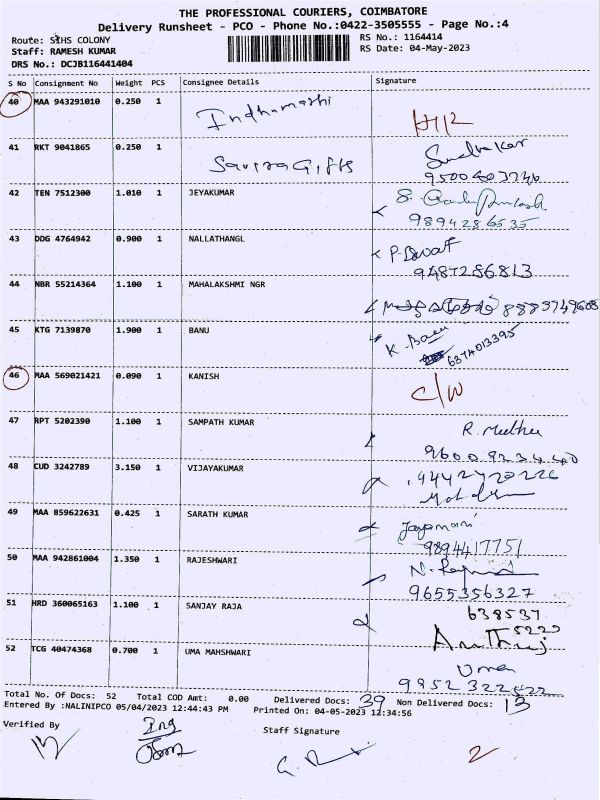 THE PROFESSIONAL COURIERS, COIMBATORE
Delivery Runsheet - PCO - Phone No.:0422-3505555 - Page No.:4
Route: SIHS COLONY
RS No.: 1164414
Staff: RAMESH KUMAR
RS Date: 04-May-2023
DRS No.: DCJB116441404
S No Consignment No Weight PCS Consignee Details Signature
40 MAA 943291010 0.250 1 Indhumathi
41 RKT 9041865 0.250 1 Saviragifts Sudhakar
42 TEN 7512300 1.010 1 JEYAKUMAR
9894286535
43 DDG 4764942 0.900 1 NALLATHANGL
9487286813
44 NBR 55214364 1.100 1 MAHALAKSHMI NGR
45 KTG 7139870 1.900 1 BANU K. Banu
6374013395
46 MAA 569021421 0.090 1 KANISH C/W
47 RPT 5202390 1.100 1 SAMPATH KUMAR R. Meethu
48 CUD 3242789 3.150 1 VIJAYAKUMAR
49 MAA 859622631 0.425 1 SARATH KUMAR Jayamani
9894417751
50 MAA 942861004 1.350 1 RAJESHWARI
9655356327
51 HRD 360065163 1.100 1 SANJAY RAJA 638537
5220
52 TCG 40474368 0.700 1 UMA MAHSHWARI Uma
Total No. Of Docs: 52 Total COD Amt: 0.00 Delivered Docs: 39 Non Delivered Docs: 13
Entered By :NALINIPCO 05/04/2023 12:44:43 PM Printed On: 04-05-2023 12:34:56
Verified By
Staff Signature
2